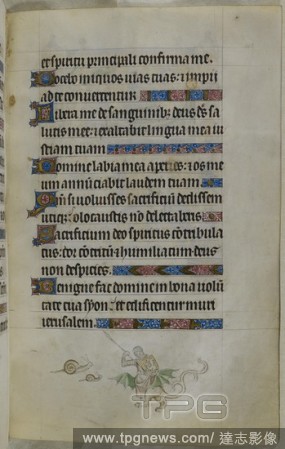 et spiritu principali confirma me.
Docebo iniquos vias tuas: et impii
ad te convertentur
Libera me de sanguinib; deus deus sa
lutis mee: et exaltabit lingua mea iu
sticiam tuam
Domine labia mea aperies: et os me
um annunciabit laudem tuam
Qm si voluisses sacrificium dedissem
utiq; olocaustis non delectaberis
Sacrificium deo spiritus contribula
tus: cor contritum et humiliatum deus
non despicies.
Benigne fac domine in bona volun
tate tua syon: et edificentur muri
ierusalem.
TPG
www.tpgnews.com/ 達志影像